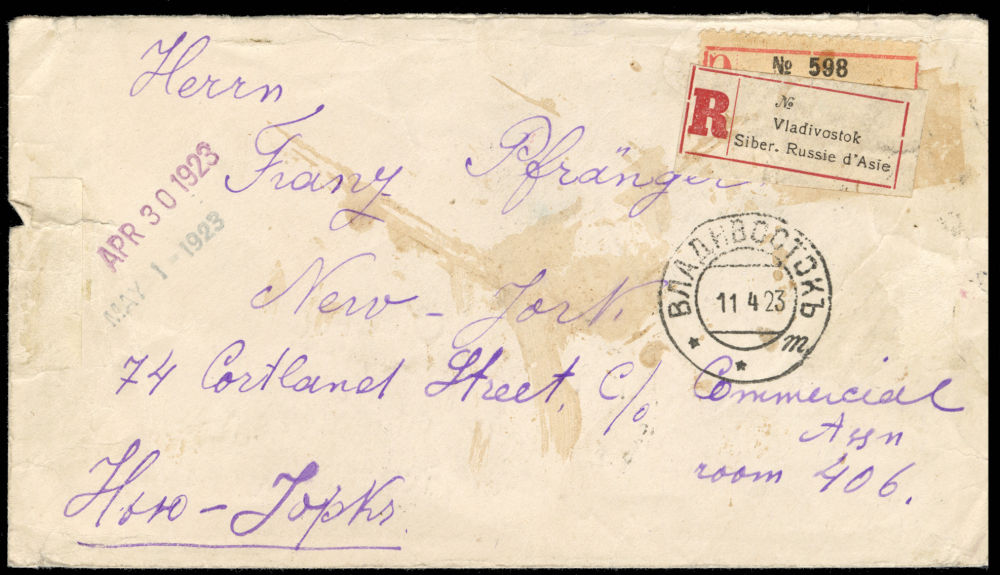 № 598
R
№
Vladivostok
Siber. Russie d'Asie
Herrn
Franz Pfränger
APR 30 1923
MAY 1 - 1923
ВЛАДИВОСТОКЪ
11 4 23
m
New-York.
74 Cortland Street, C/o Commercial
Assn
room 406.
Нью-Јоркъ.